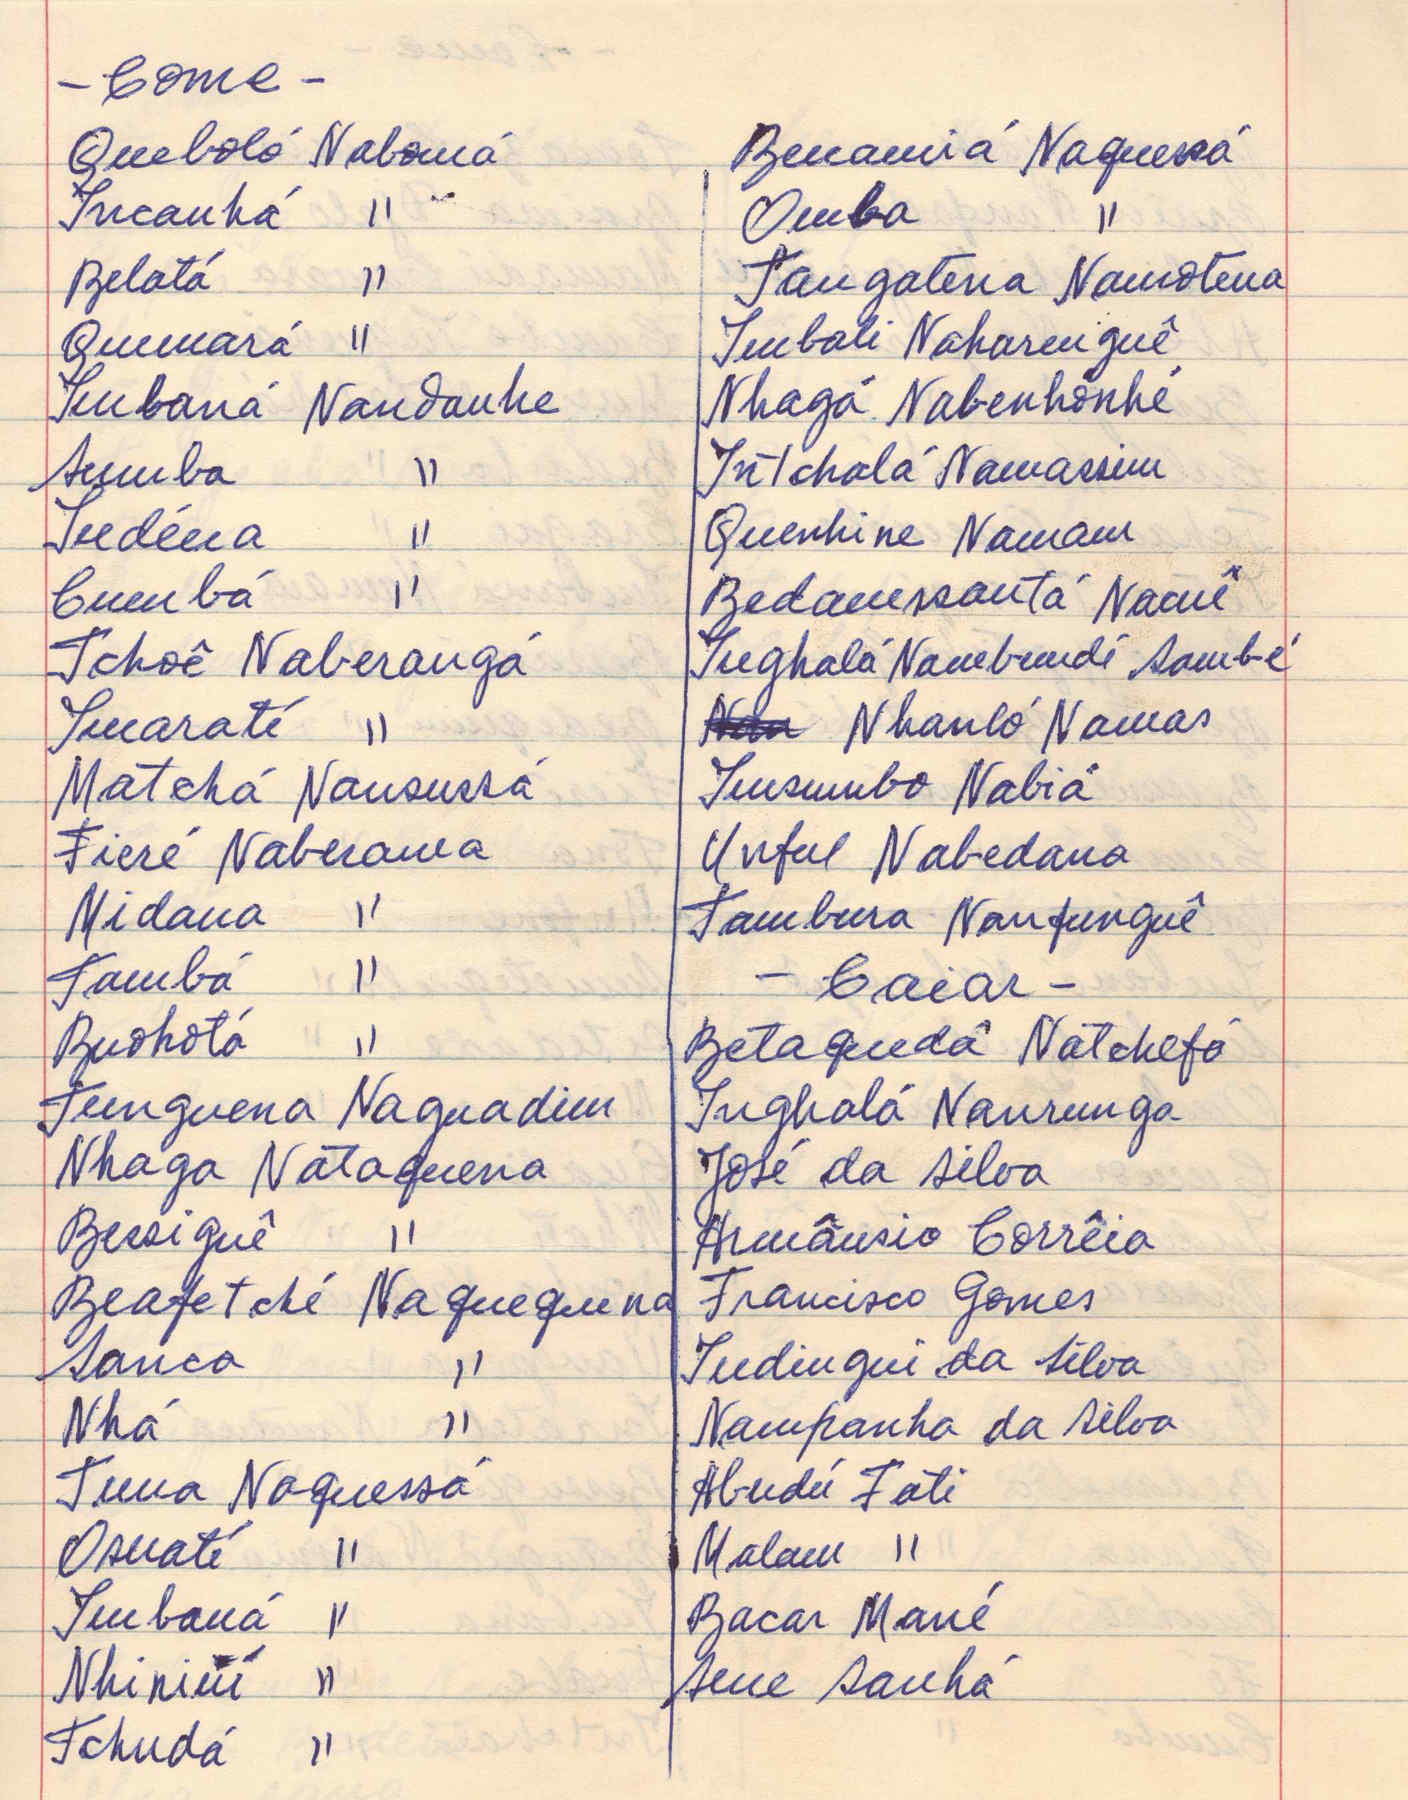 - Come -
Queboló Nabomá
Incanhá "
Belatá "
Qumará "
Imbaná Nandanhe
Sumba "
Indéna "
Cumbá "
Tchoê Naberangá
Imaraté "
Matchá Nansussá
Fieré Naberama
Midana "
Tambá "
Buohotá "
Tunguena Naguadim
Nhaga Nataquena
Bessiguê "
Beafetché Naquequena
Sanca "
Nhá "
Tuna Naquessá
Osuaté "
Imbaná "
"
Tchudá "
Benamiá Naquessá
Omba "
Tangatena Namotena
Imbali Naharniguê
Nhagá Nabenhonhé
Intchalá Namassim
Quenhine Namam
Bedamssantá Namê
Inghalá Nambundé Sambé
Nhanló Namas
Insumbo Nabiá
Unful Nabedana
Tambura Nanfunguê
- Caiar -
Betaquedá Natchefá
Inghalá Nanrunga
José da Silva
Armânsio Corrêia
Francisco Gomes
Indingui da Silva
Nampanha da Silva
Abudú Fati
Malam "
Bacar Mané
Sene Sanhá